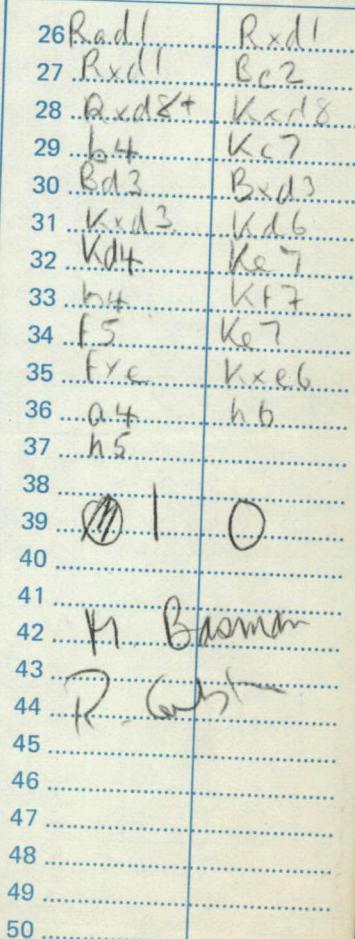 26 Rad1 Rxd1
27 Rxd1 Bc2
28 Rxd8+ Kxd8
29 b4 Kc7
30 Bd3 Bxd3
31 Kxd3 Kd6
32 Kd4 Ke7
33 h4 Kf7
34 f5 Ke7
35 fxe Kxe6
36 a4 h6
37 h5
38
39 1 0
40
41
42 M. Basman
43
44 R.
45
46
47
48
49
50